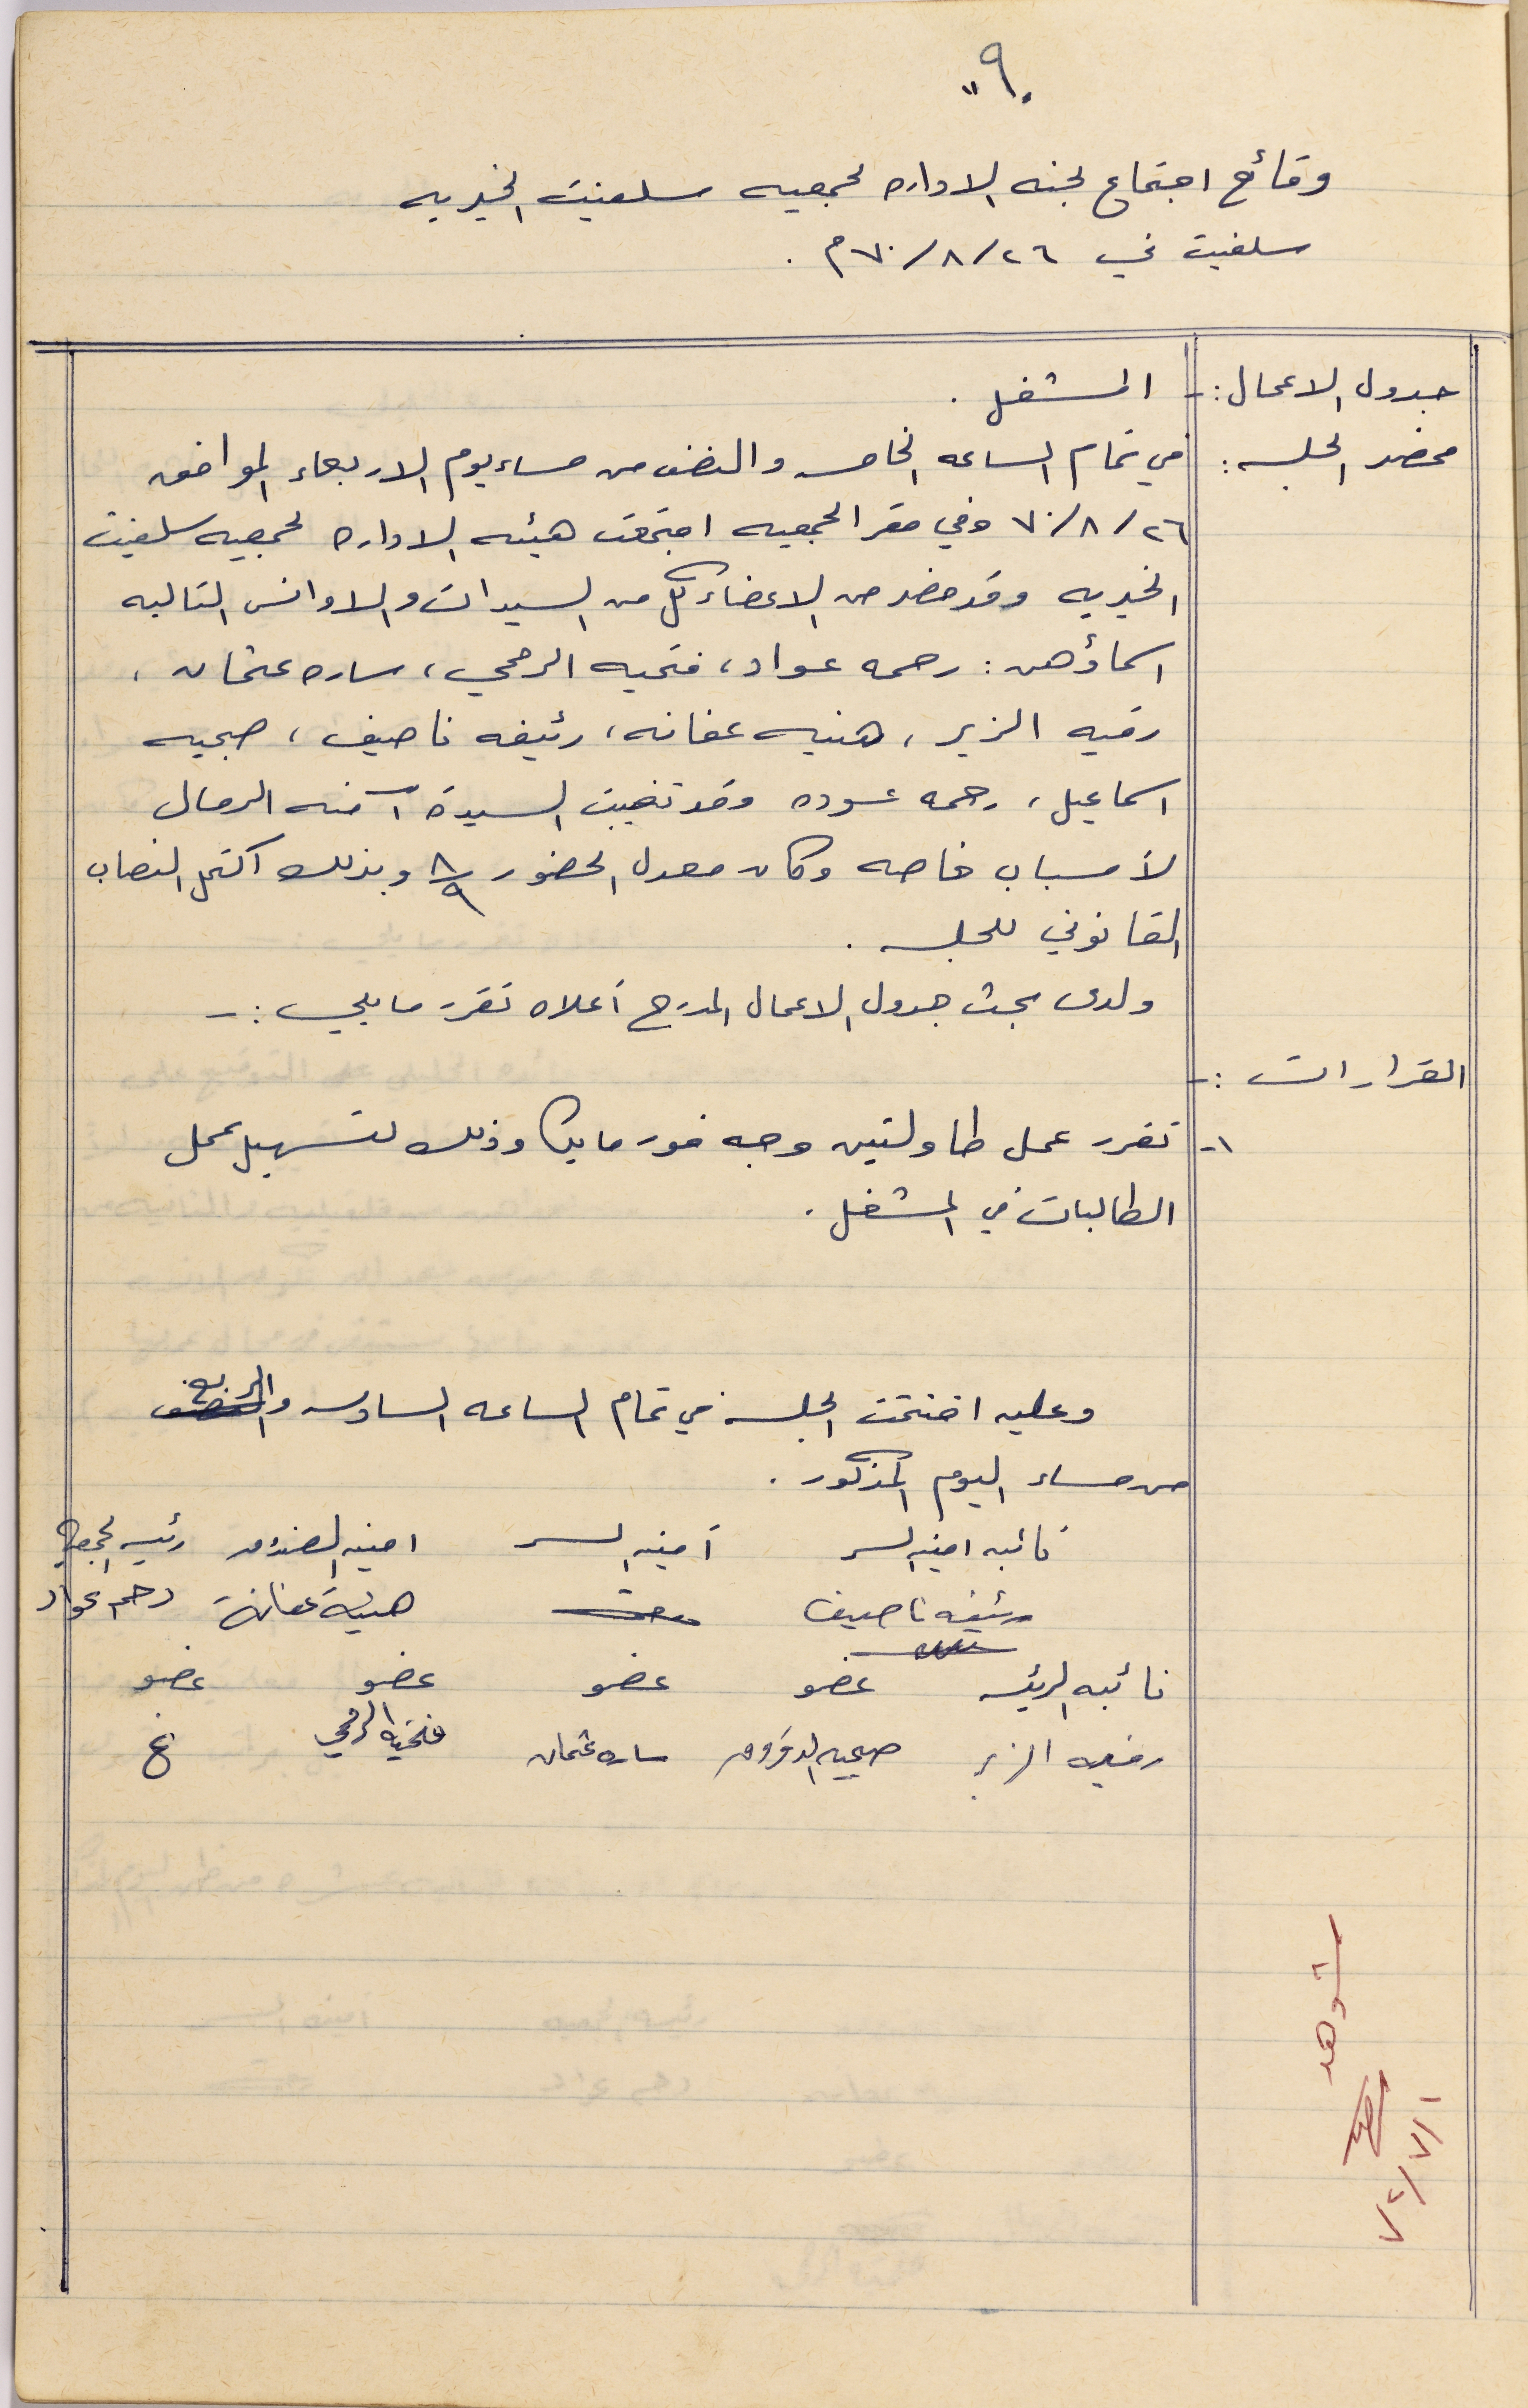 ٩٠"
وقائع اجتماع لجنه الاداره لجمعيه سلفيت الخيريه
سلفيت في ٢٦/٨/٧٠م .
جدول الاعمال :- المشغل .
محضر الجلسه : في تمام الساعه الخامسه والنصف من مساء يوم الاربعاء الموافق
٢٦/٨/٧٠ وفي مقر الجمعيه اجتمعت هيئه الاداره لجمعيه سلفيت
الخيريه وقد حضر من الاعضاء كل من السيدات والاوانس التاليه
اسماؤهن : رحمه عواد ، فتحيه الرمحي ، ساره عثمان ،
رقيه الزير ، هنيه عفانه ، رئيفه ناصيف ، صبحيه
اسماعيل ، رحمه عوده وقد تغيبت السيدة آمنه الرمال
لأسباب خاصه وكان معدل الحضور ٨/٩ وبذلك اكتمل النصاب
القانوني للجلسه .
ولدى بحث جدول الاعمال المدرج أعلاه تقرر ما يلي :-
القرارات :-
١- تقرر عمل طاولتين وجه فورمايكا وذلك لتسهيل عمل
الطالبات في المشغل .
وعليه اختتمت الجلسه في تمام الساعه السادسه والربع
من مساء اليوم المذكور .
نائبه امينه السر أمينه السر امينه الصندوق رئيسه الجمعيه
رئيفه ناصيف هنية عفانة رحمه عواد
نائبه الرئيسه عضو عضو عضو عضو
رقيه الزير صبحيه ساره عثمان فتحية الرمحي غ
شوهد
١/٧/٧٢